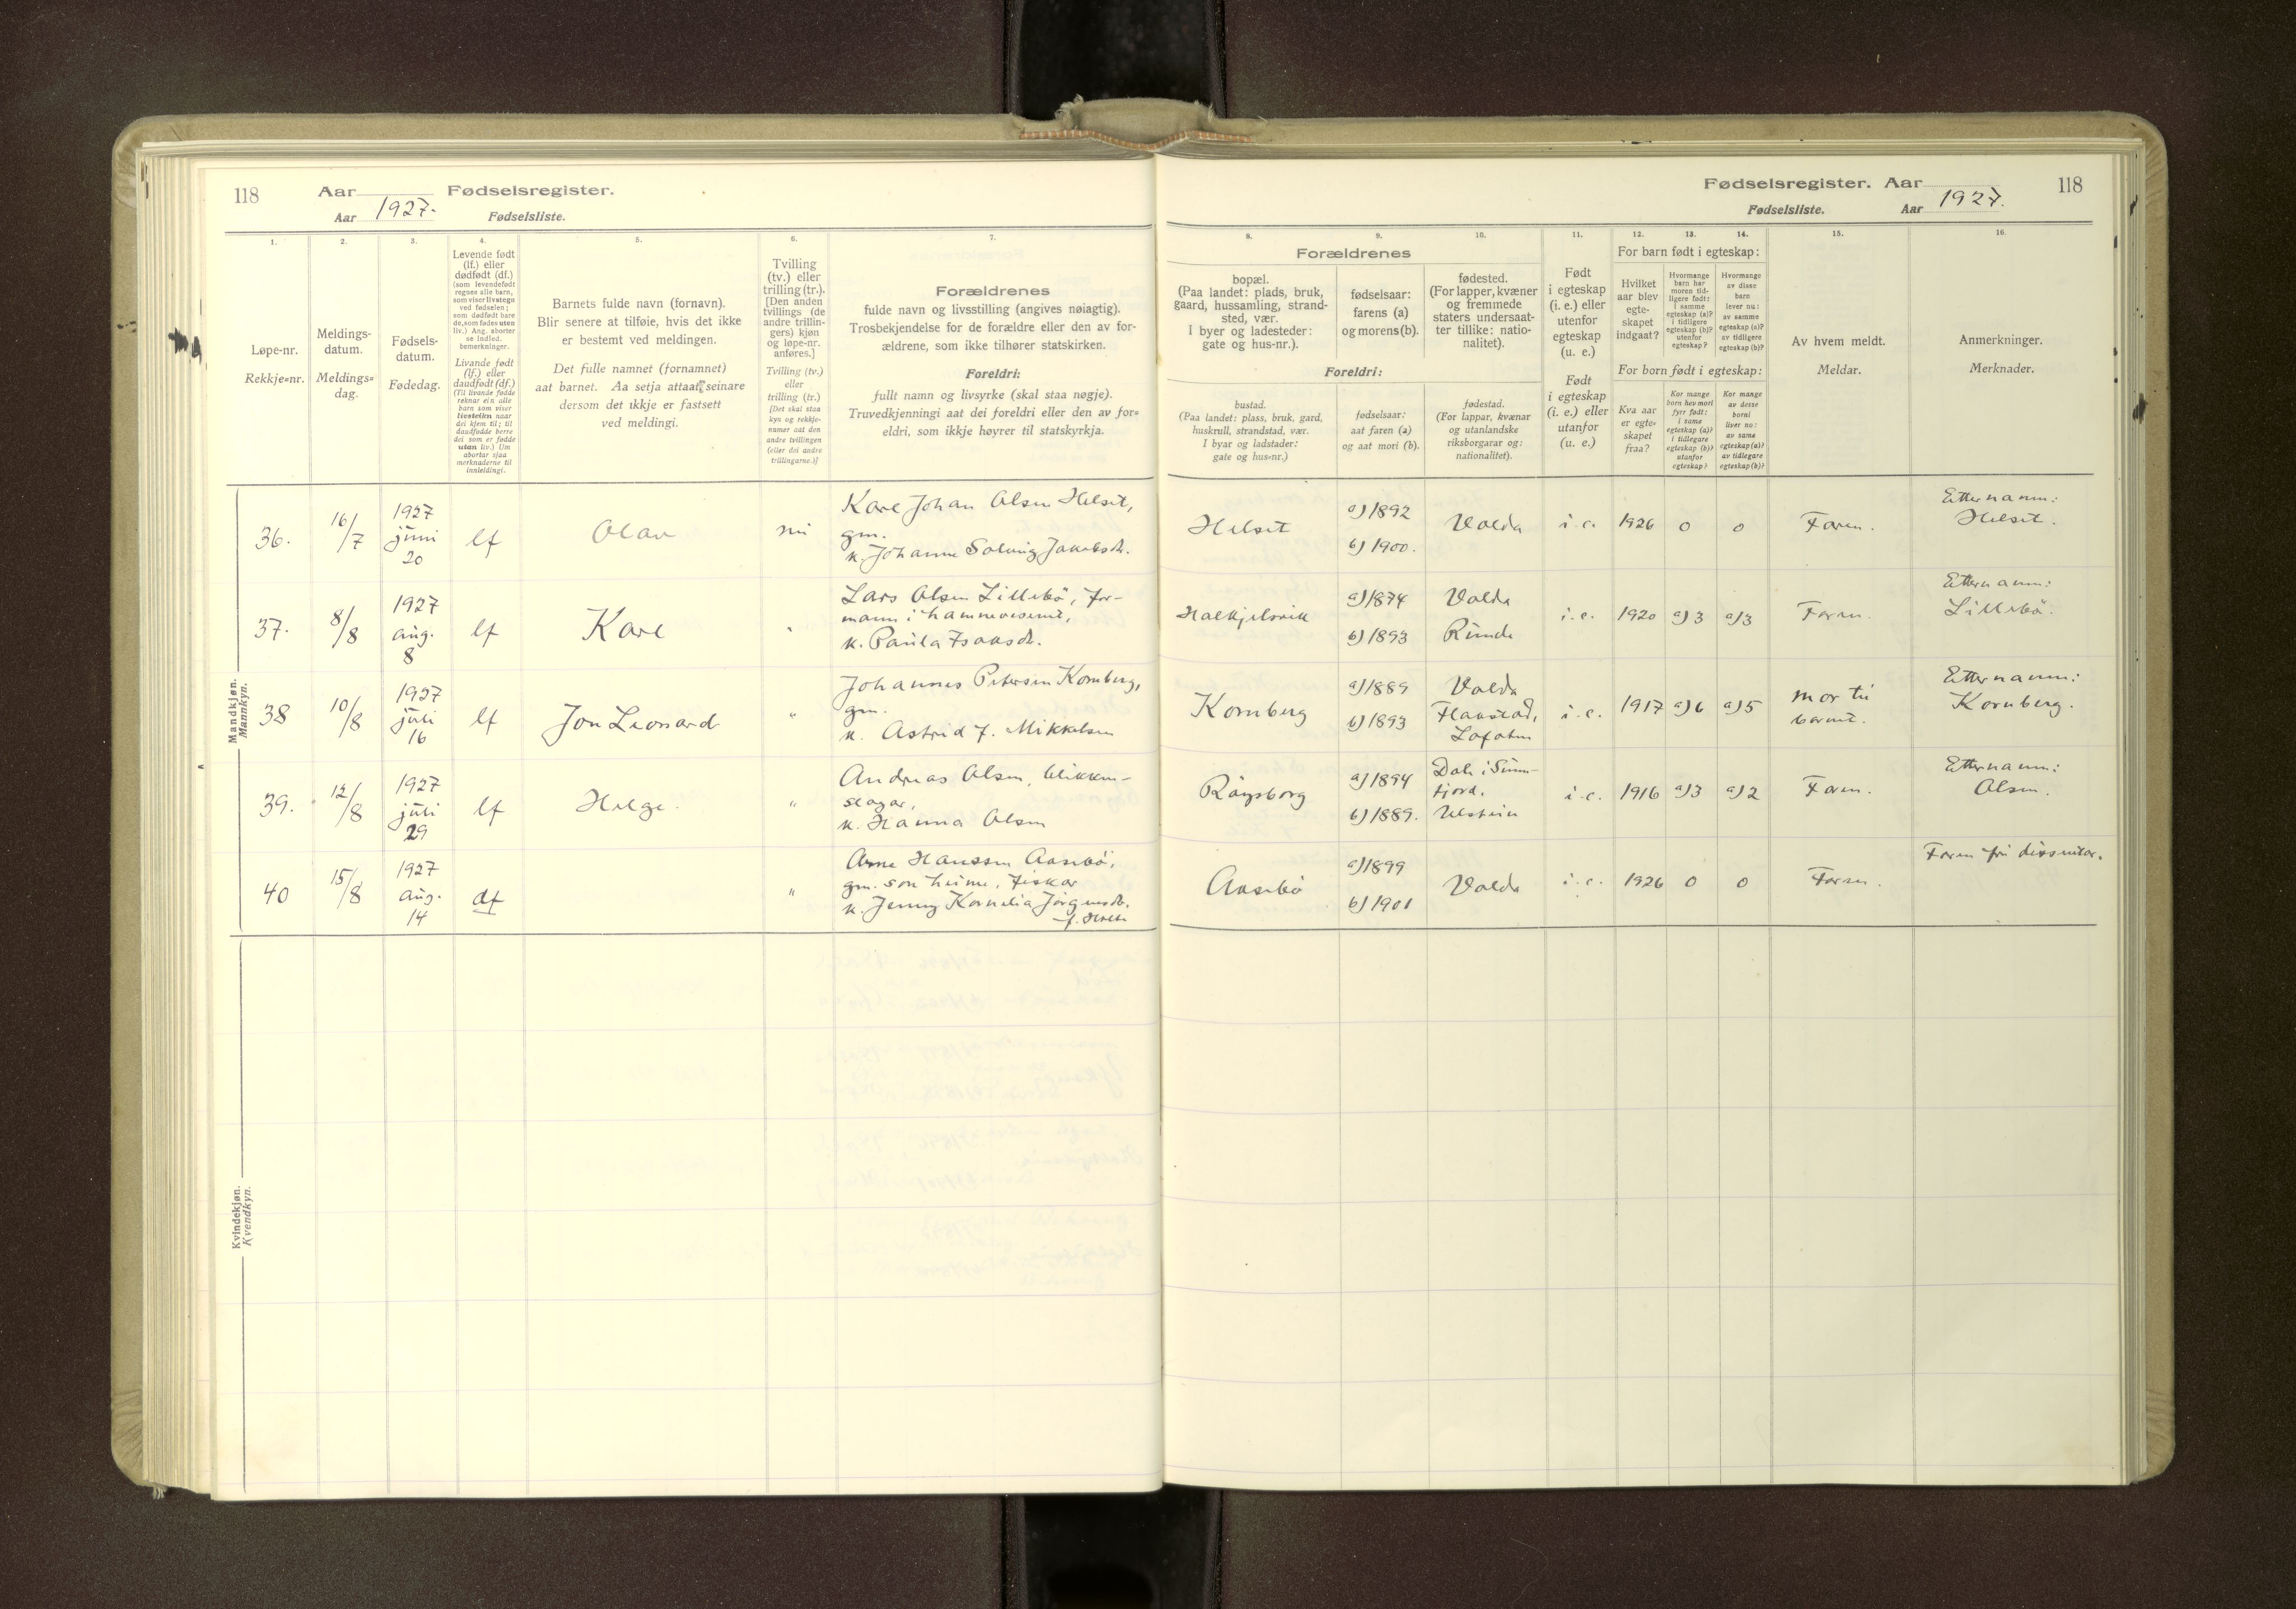 118 Aar Fødselsregister.
Aar 1927. Fødselsliste.
1. 2. 3. 4. 5. 6. 7.
Løpe-nr.
Rekkje=nr.
Meldings-
datum.
Meldings=
dag.
Fødsels-
datum.
Fødedag.
Levende født
(lf.) eller
dødfødt (df.)
(som levendefødt
regnes alle barn,
som viser livstegn
ved fødselen;
som dødfødt bare
de, som fødes uten
liv.) Ang. aborter
se indled.
bemerkninger.
Livande født
(lf.) eller
daudfødt (df.)
(Til livande fødde
reknar ein alle
barn som viser
livsteikn naar
dei kjem til; til
daudfødde berre
dei som er fødde
utan liv.) Um
abortar sjaa
merknaderne til
innleidingi.
Barnets fulde navn (fornavn).
Blir senere at tilføie, hvis det ikke
er bestemt ved meldingen.
Det fulle namnet (fornamnet)
aat barnet. Aa setja attaat seinare
dersom det ikkje er fastsett
ved meldingi.
Tvilling
(tv.) eller
trilling (tr.).
[Den anden
tvillings (de
andre trillin-
gers) kjøn
og løpe-nr.
anføres.]
Tvilling (tv.)
eller
trilling (tr.)
[Det skal staa
kyn og rekkje-
numer aat den
andre tvillingen
(eller dei andre
trillingarne.)]
Forældrenes
fulde navn og livsstilling (angives nøiagtig).
Trosbekjendelse for de forældre eller den av for-
ældrene, som ikke tilhører statskirken.
Foreldri:
fullt namn og livsyrke (skal staa nøgje).
Truvedkjenningi aat dei foreldri eller den av for=
eldri, som ikkje høyrer til statskyrkja.
Mandkjøn.
Mannkyn.
36. 16/7 1927 juni 20 lf Olav nei
Kare Johan Olsen Helset,
gm.
k. Johanne Solveig Jakobsdr.
37. 8/8 1927 aug. 8 lf Kare "
Lars Olsen Lillebö, for-
mann i hamnevesenet,
k. Paula Isaksdr.
38 10/8 1927 juli 16 lf Jon Leonard "
Johannes Petersen Kornberg,
gm.
k. Astrid f. Mikkelsen
39. 12/8 1927 juli 29 lf Helge. "
Andreas Olsen, blikken-
slagar,
k. Hanna Olsen
40 15/8 1927 aug. 14 df "
Arne Hanssen Aasebö,
gm. son heime, fiskar
k. Jenny Kornelia Jörgensdr.
Kvindekjøn.
Kvendkyn.
Fødselsregister. Aar 118
Fødselsliste. Aar 1927.
8. 9. 10. 11. 12. 13. 14. 15. 16.
Forældrenes
bopæl.
(Paa landet: plads, bruk,
gaard, hussamling, strand-
sted, vær.
I byer og ladesteder:
gate og hus-nr.).
fødselsaar:
farens (a)
og morens (b).
fødested.
(For lapper, kvæner
og fremmede
staters undersaat-
ter tillike: natio-
nalitet).
Foreldri:
bustad.
(Paa landet: plass, bruk, gard,
huskrull, strandstad, vær.
I byar og ladstader:
gate og hus=nr.)
fødselsaar:
aat faren (a)
og aat mori (b).
fødestad.
(For lappar, kvænar
og utanlandske
riksborgarar og:
nationalitet).
Født
i egteskap
(i. e.) eller
utenfor
egteskap
(u. e.)
Født
i egteskap
(i. e.) eller
utanfor
(u. e.)
For barn født i egteskap:
Hvilket
aar blev
egte-
skapet
indgaat?
Hvormange
barn har
moren tid-
ligere født:
i samme
egteskap (a)?
i tidligere
egteskap (b)?
utenfor
egteskap?
Hvormange
av disse
barn
lever nu:
av samme
egteskap (a)?
av tidligere
egteskap (b)?
For born født i egteskap:
Kva aar
er egte-
skapet
fraa?
Kor mange
born hev mori
fyrr født:
i same
egteskap (a)?
i tidlegare
egteskap (b)?
utanfor
egteskap?
Kor mange
av desse
borni
liver no:
av same
egteskap (a)?
av tidlegare
egteskap (b)?
Av hvem meldt.
Meldar.
Anmerkninger.
Merknader.
Helset a) 1892 b) 1900. Volda i. e. 1926 0 0 Faren. Etternamn: Helset.
Halkjelsvik a) 1874 b) 1893 Volda Runde i. e. 1920 a) 3 a) 3 Faren. Etternamn: Lillebö.
Kornberg a) 1889 b) 1893 Volda Flakstad, Lofoten i. e. 1917 a) 6 a) 5 Mor til barnet. Etternamn: Kornberg.
Röysborg a) 1894 b) 1889. Dale i Sunn-fjord. Ulstein i. e. 1916 a) 3 a) 2 Faren. Etternamn: Olsen.
Aasebö a) 1899 b) 1901 Volda i. e. 1926 0 0 Faren. Faren fri dissenter.